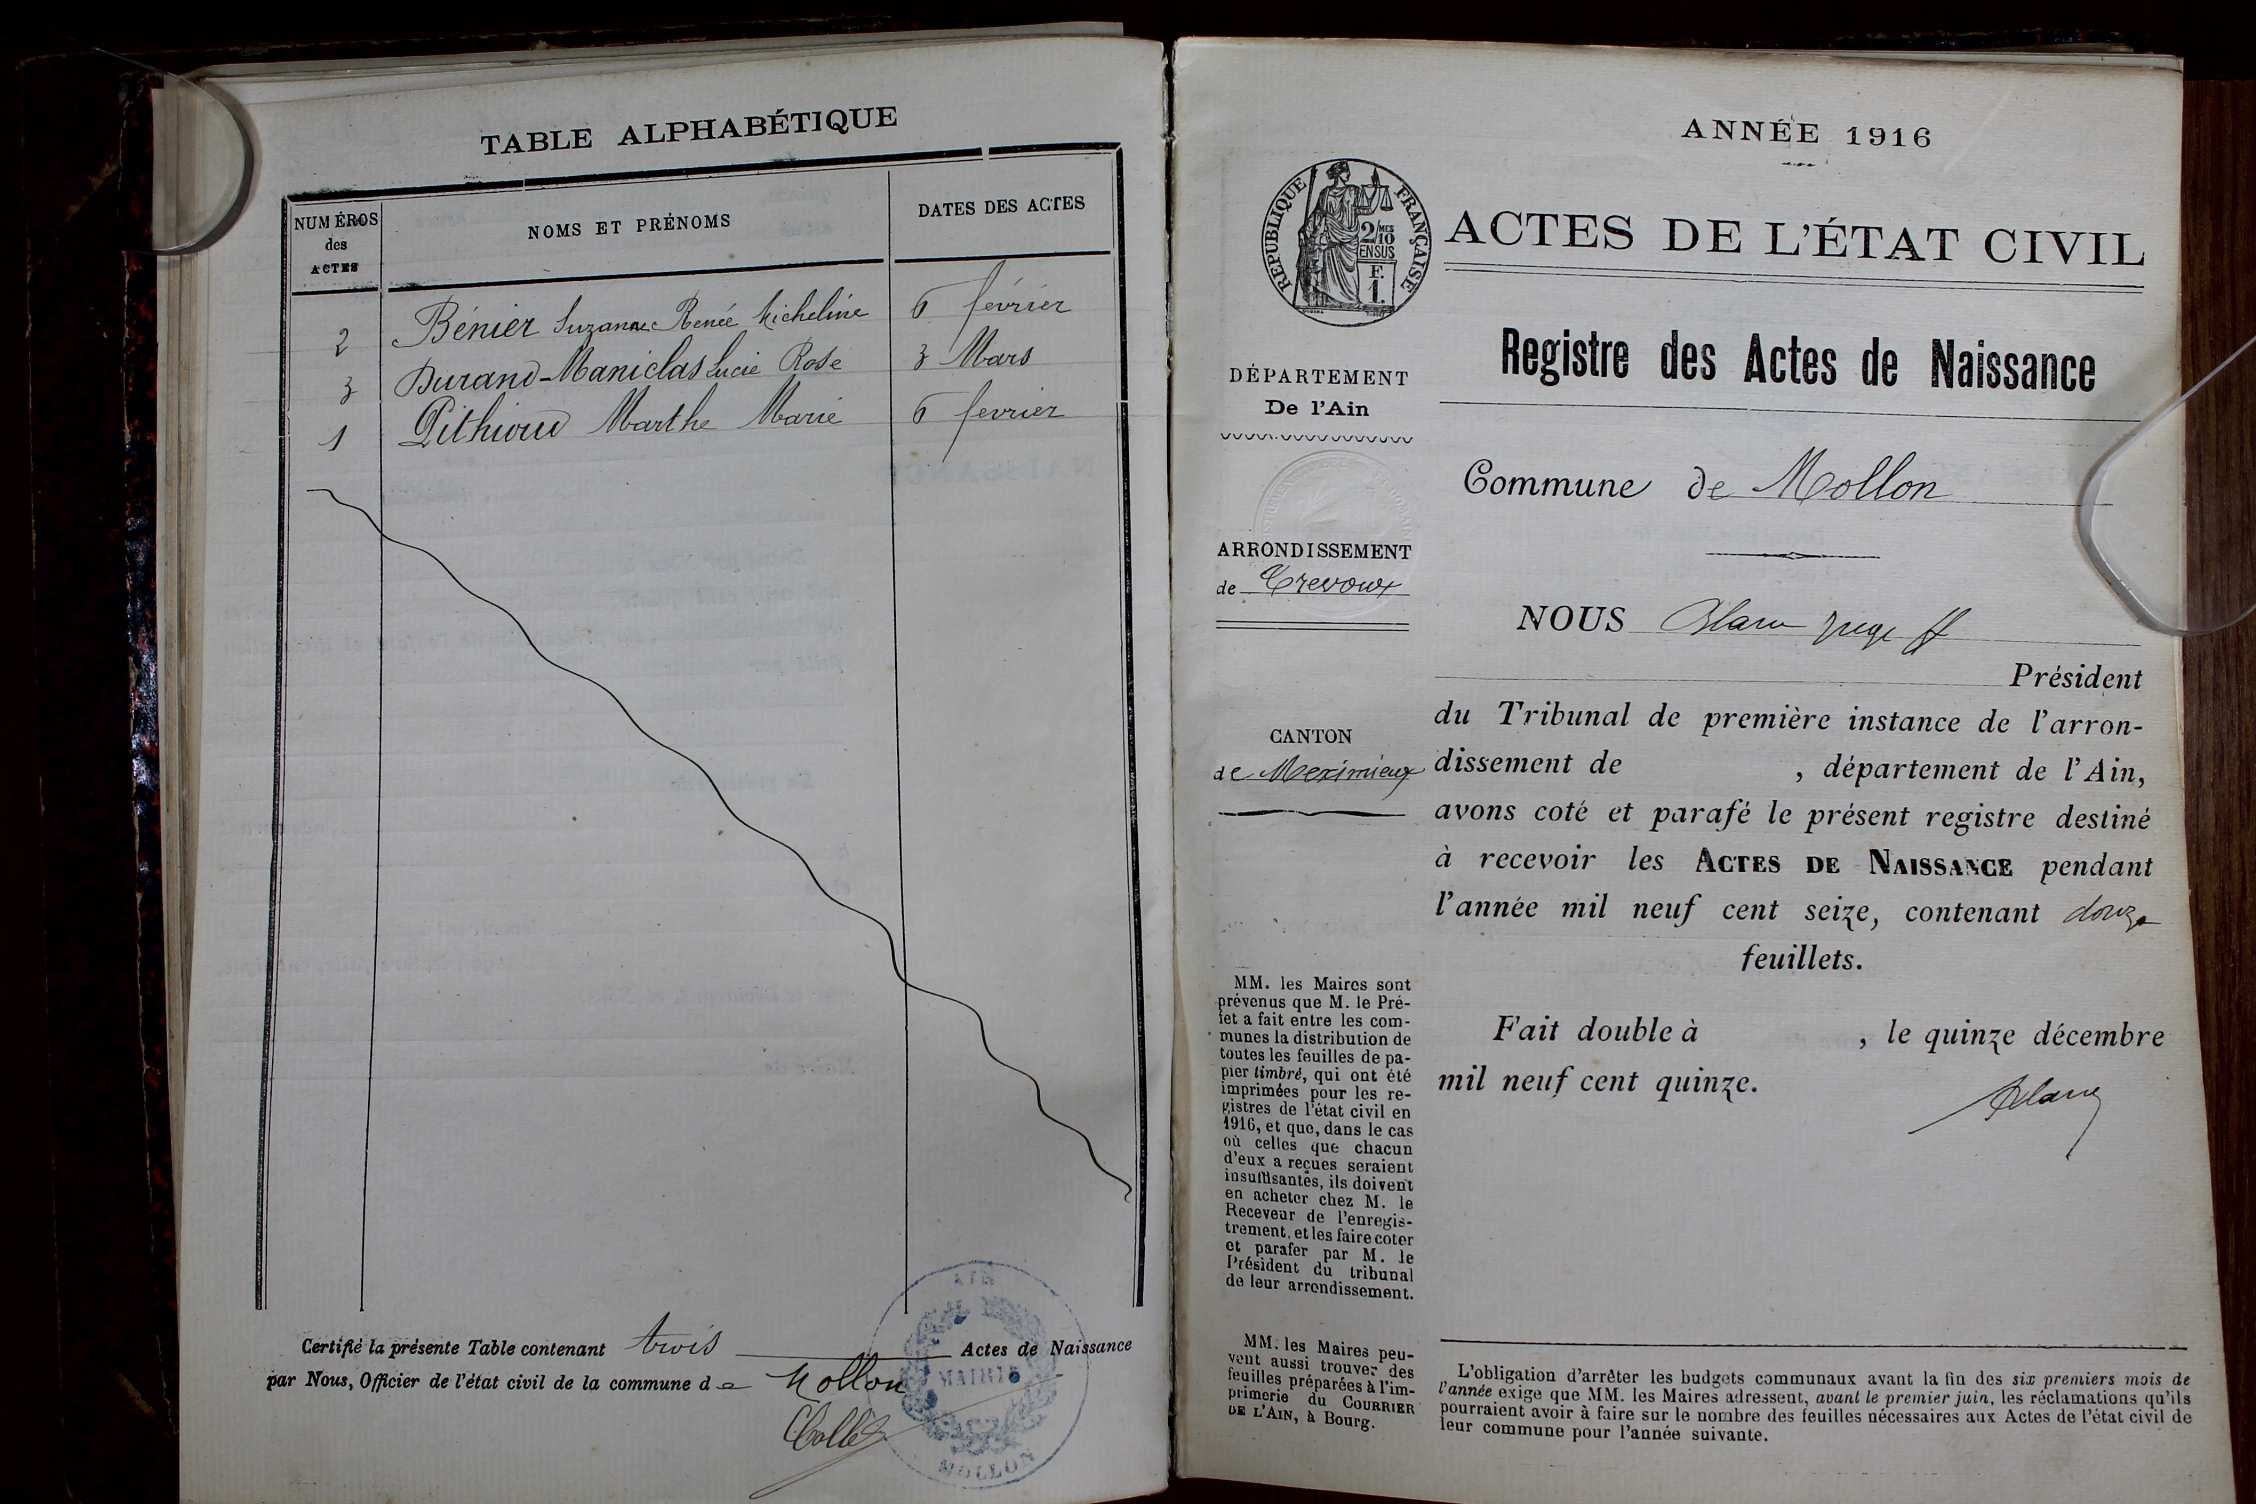 TABLE ALPHABÉTIQUE
NUMÉROS
des
ACTES
NOMS ET PRÉNOMS
DATES DES ACTES
2 Bénier Suzanne Renée Micheline 6 février
3 Durand-Maniclas Lucie Rose 3 Mars
1 Pithioud Marthe Marie 6 fevrier
Certifié la présente Table contenant trois Actes de Naissance
par Nous, Officier de l'état civil de la commune de Mollon
AIN
MAIRIE
MOLLON
ANNÉE 1916
RÉPUBLIQUE FRANÇAISE
2/10 MES
EN SUS
F.
1.
ACTES DE L'ÉTAT CIVIL
Registre des Actes de Naissance
DÉPARTEMENT
De l'Ain
Commune de Mollon
ARRONDISSEMENT
de Trevoux
CANTON
de Meximieux
NOUS
Président
du Tribunal de première instance de l'arron-
dissement de , département de l'Ain,
avons coté et parafé le présent registre destiné
à recevoir les ACTES DE NAISSANCE pendant
l'année mil neuf cent seize, contenant douze
feuillets.
Fait double à , le quinze décembre
mil neuf cent quinze.
MM. les Maires sont
prévenus que M. le Pré-
fet a fait entre les com-
munes la distribution de
toutes les feuilles de pa-
pier timbré, qui ont été
imprimées pour les re-
gistres de l'état civil en
1916, et que, dans le cas
où celles que chacun
d'eux a reçues seraient
insuffisantes, ils doivent
en acheter chez M. le
Receveur de l'enregis-
trement, et les faire coter
et parafer par M. le
Président du tribunal
de leur arrondissement.
MM. les Maires peu-
vent aussi trouver des
feuilles préparées à l'im-
primerie du COURRIER
DE L'AIN, à Bourg.
L'obligation d'arrêter les budgets communaux avant la fin des six premiers mois de
l'année exige que MM. les Maires adressent, avant le premier juin, les réclamations qu'ils
pourraient avoir à faire sur le nombre des feuilles nécessaires aux Actes de l'état civil de
leur commune pour l'année suivante.